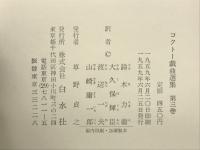 コクトー戯曲選集 第三巻
一九五九年六月二〇日印刷
一九五九年六月三〇日発行
定価 四五〇円
訳者©
鈴木力衛
大久保輝臣
渡辺一夫
山崎庸一郎
発行者 草野貞之
発行所 株式会社 白水社
東京都千代田区神田小川町三の二四
電話東京(29)七八一一五
振替東京三三二二八